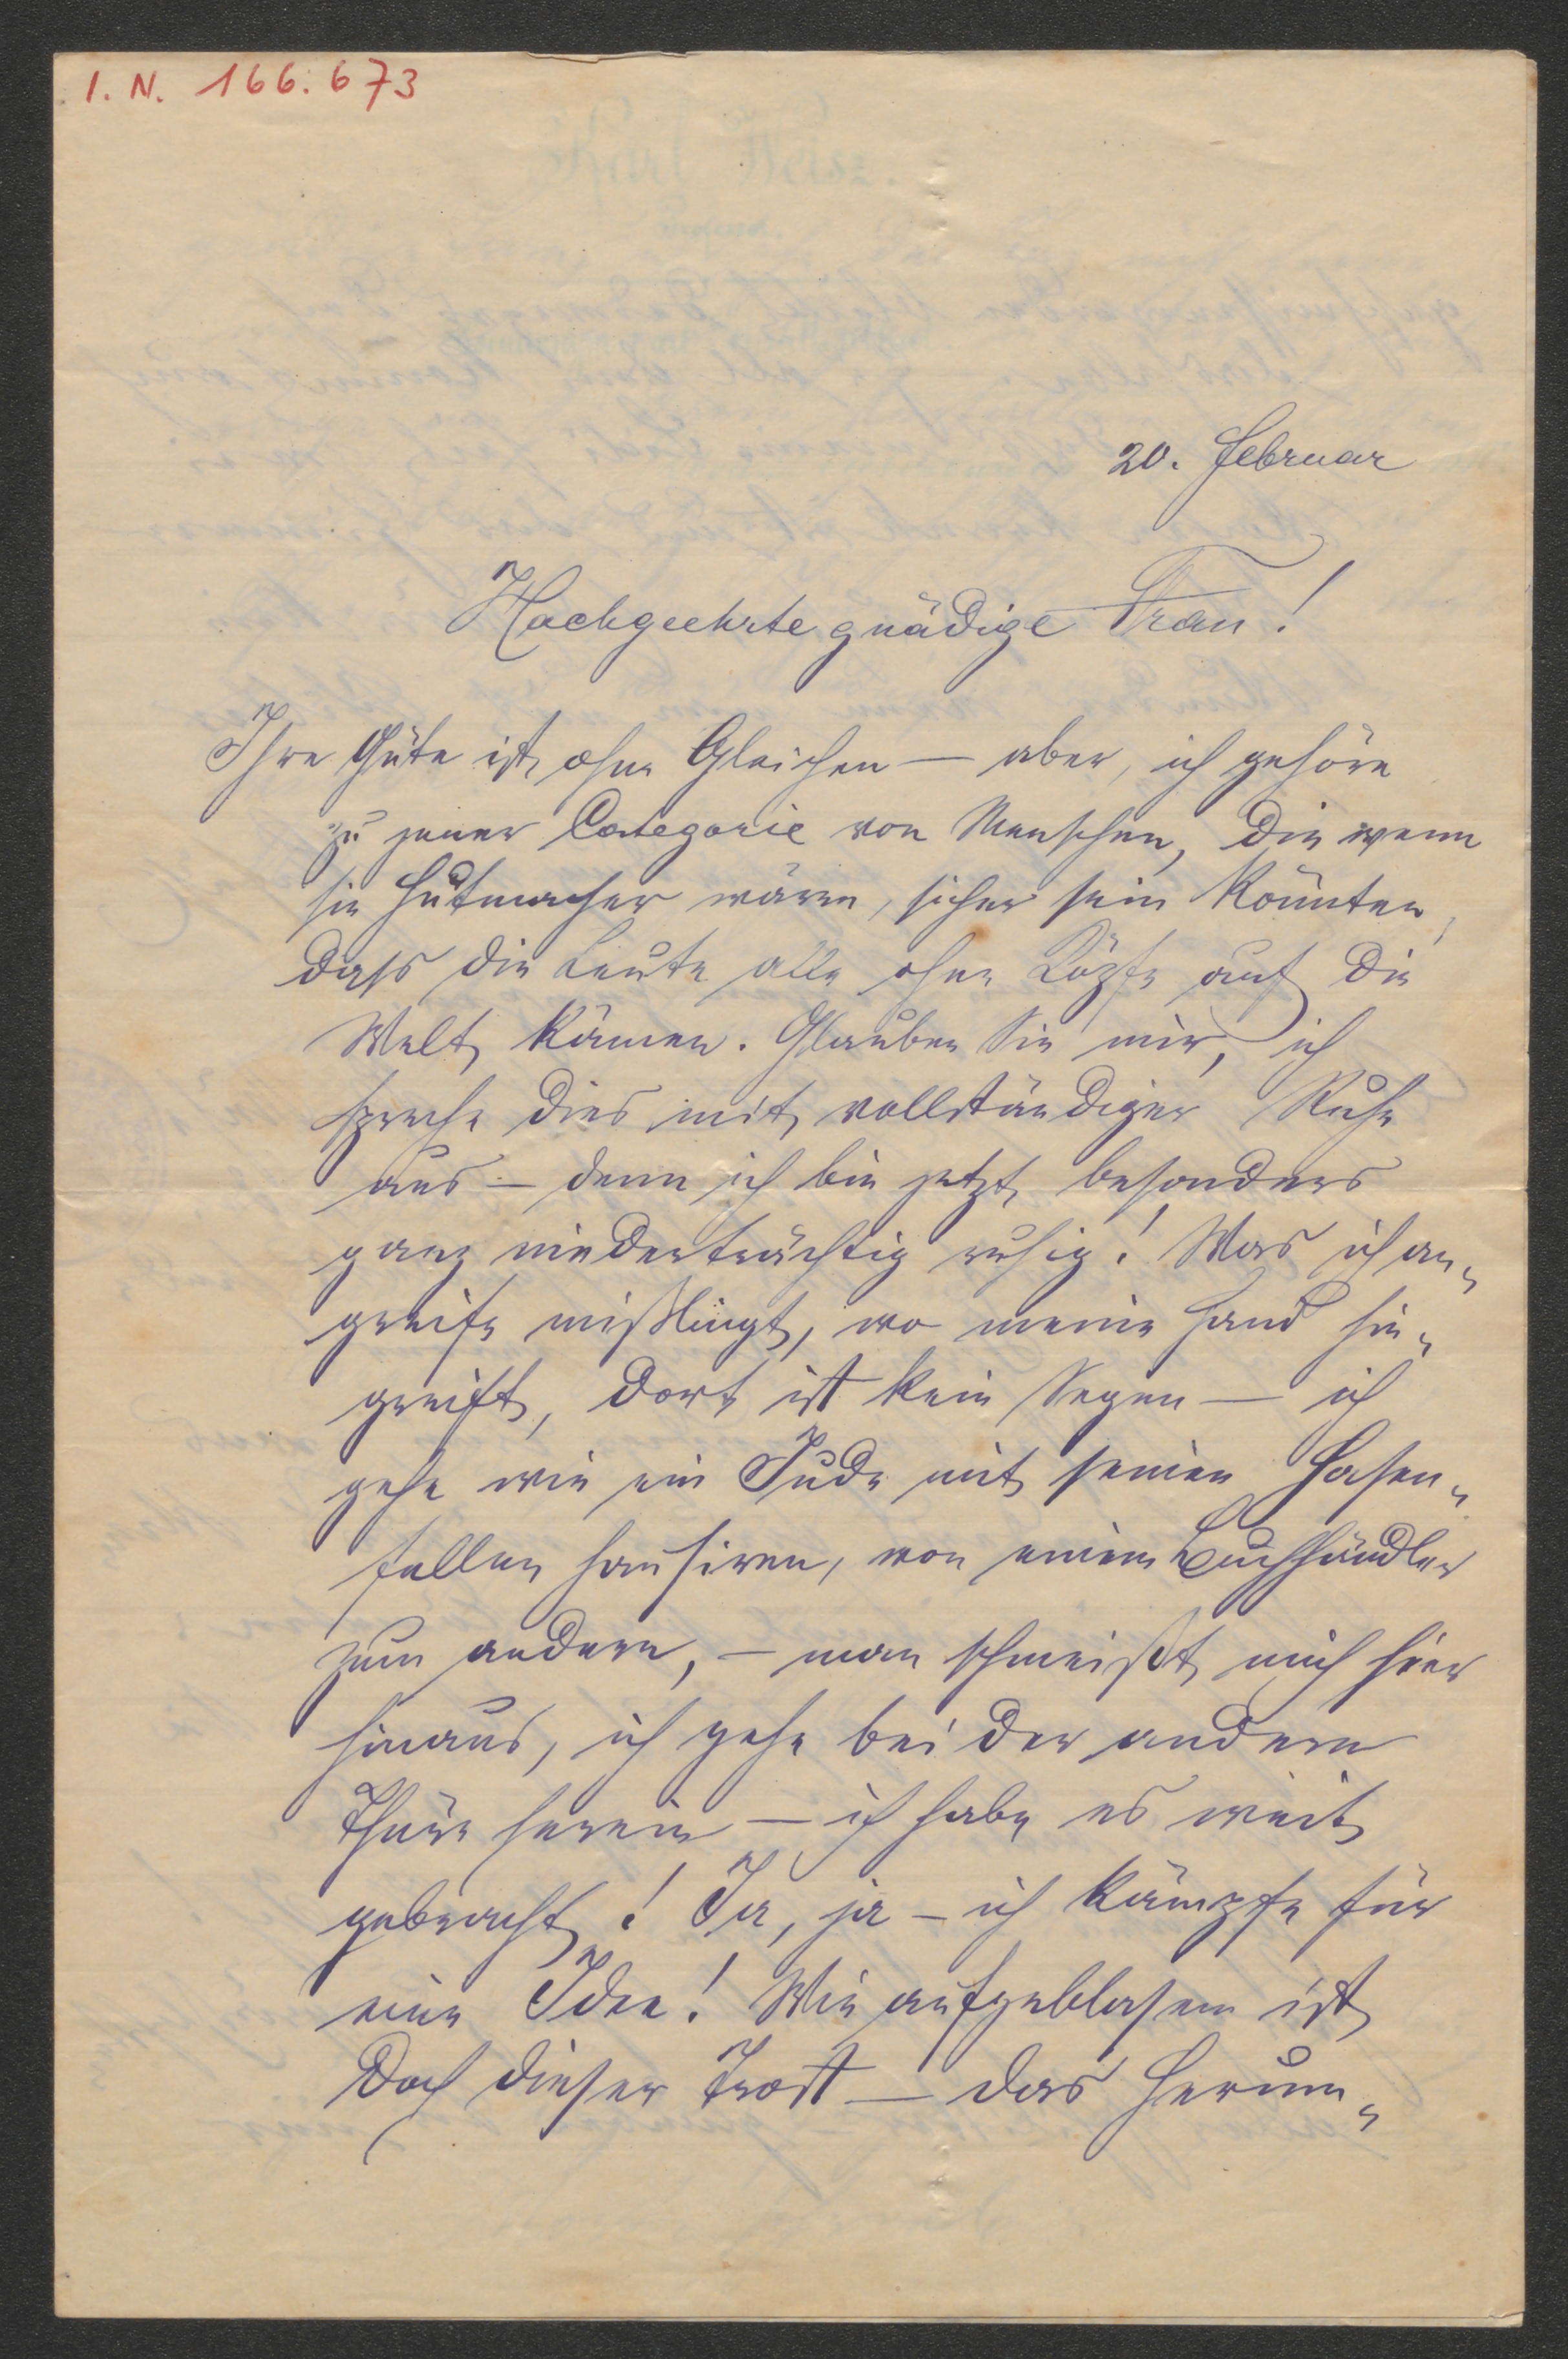 I. N. 166.673
20. Februar
Hochgeehrte gnädige Frau!
Ihre Güte ist ohne Gleichen — aber, ich gehöre
zu jener Categorie von Menschen, die wenn
sie Hutmacher wären, sicher sein könnten,
dass die Leute alle ohne Köpfe auf die
Welt kämen. Glauben Sie mir, ich
spreche dies mit vollständiger Ruhe
aus — denn ich bin jetzt besonders
ganz niederträchtig ruhig! Was ich an-
greife mißlingt, wo meine Hand hin-
greift, dort ist kein Segen — ich
gehe wie ein Jude mit seinen Hasen-
fellen hausiren, von einem Buchhändler
zum andern, — man schmeißt mich hier
hinaus, ich gehe bei der andern
Thüre herein — ich habe es weit
gebracht! Ja, ja — ich kämpfe für
eine Idee! Wie aufgeblasen ist
doch dieser Trost — das Herum-